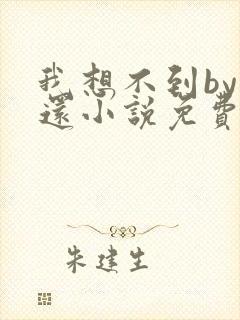 我想不到by
還小說免費
朱建生